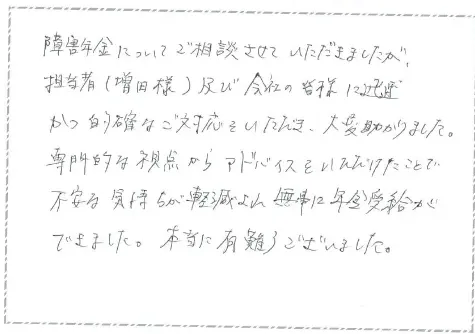 障害年金についてご相談させていただきましたが、
担当者(増田様)及び会社の皆様に迅速
かつ的確なご対応をいただき、大変助かりました。
専門的な視点からアドバイスをいただけたことで
不安な気持ちが軽減され無事に年金受給が
できました。本当に有難うございました。